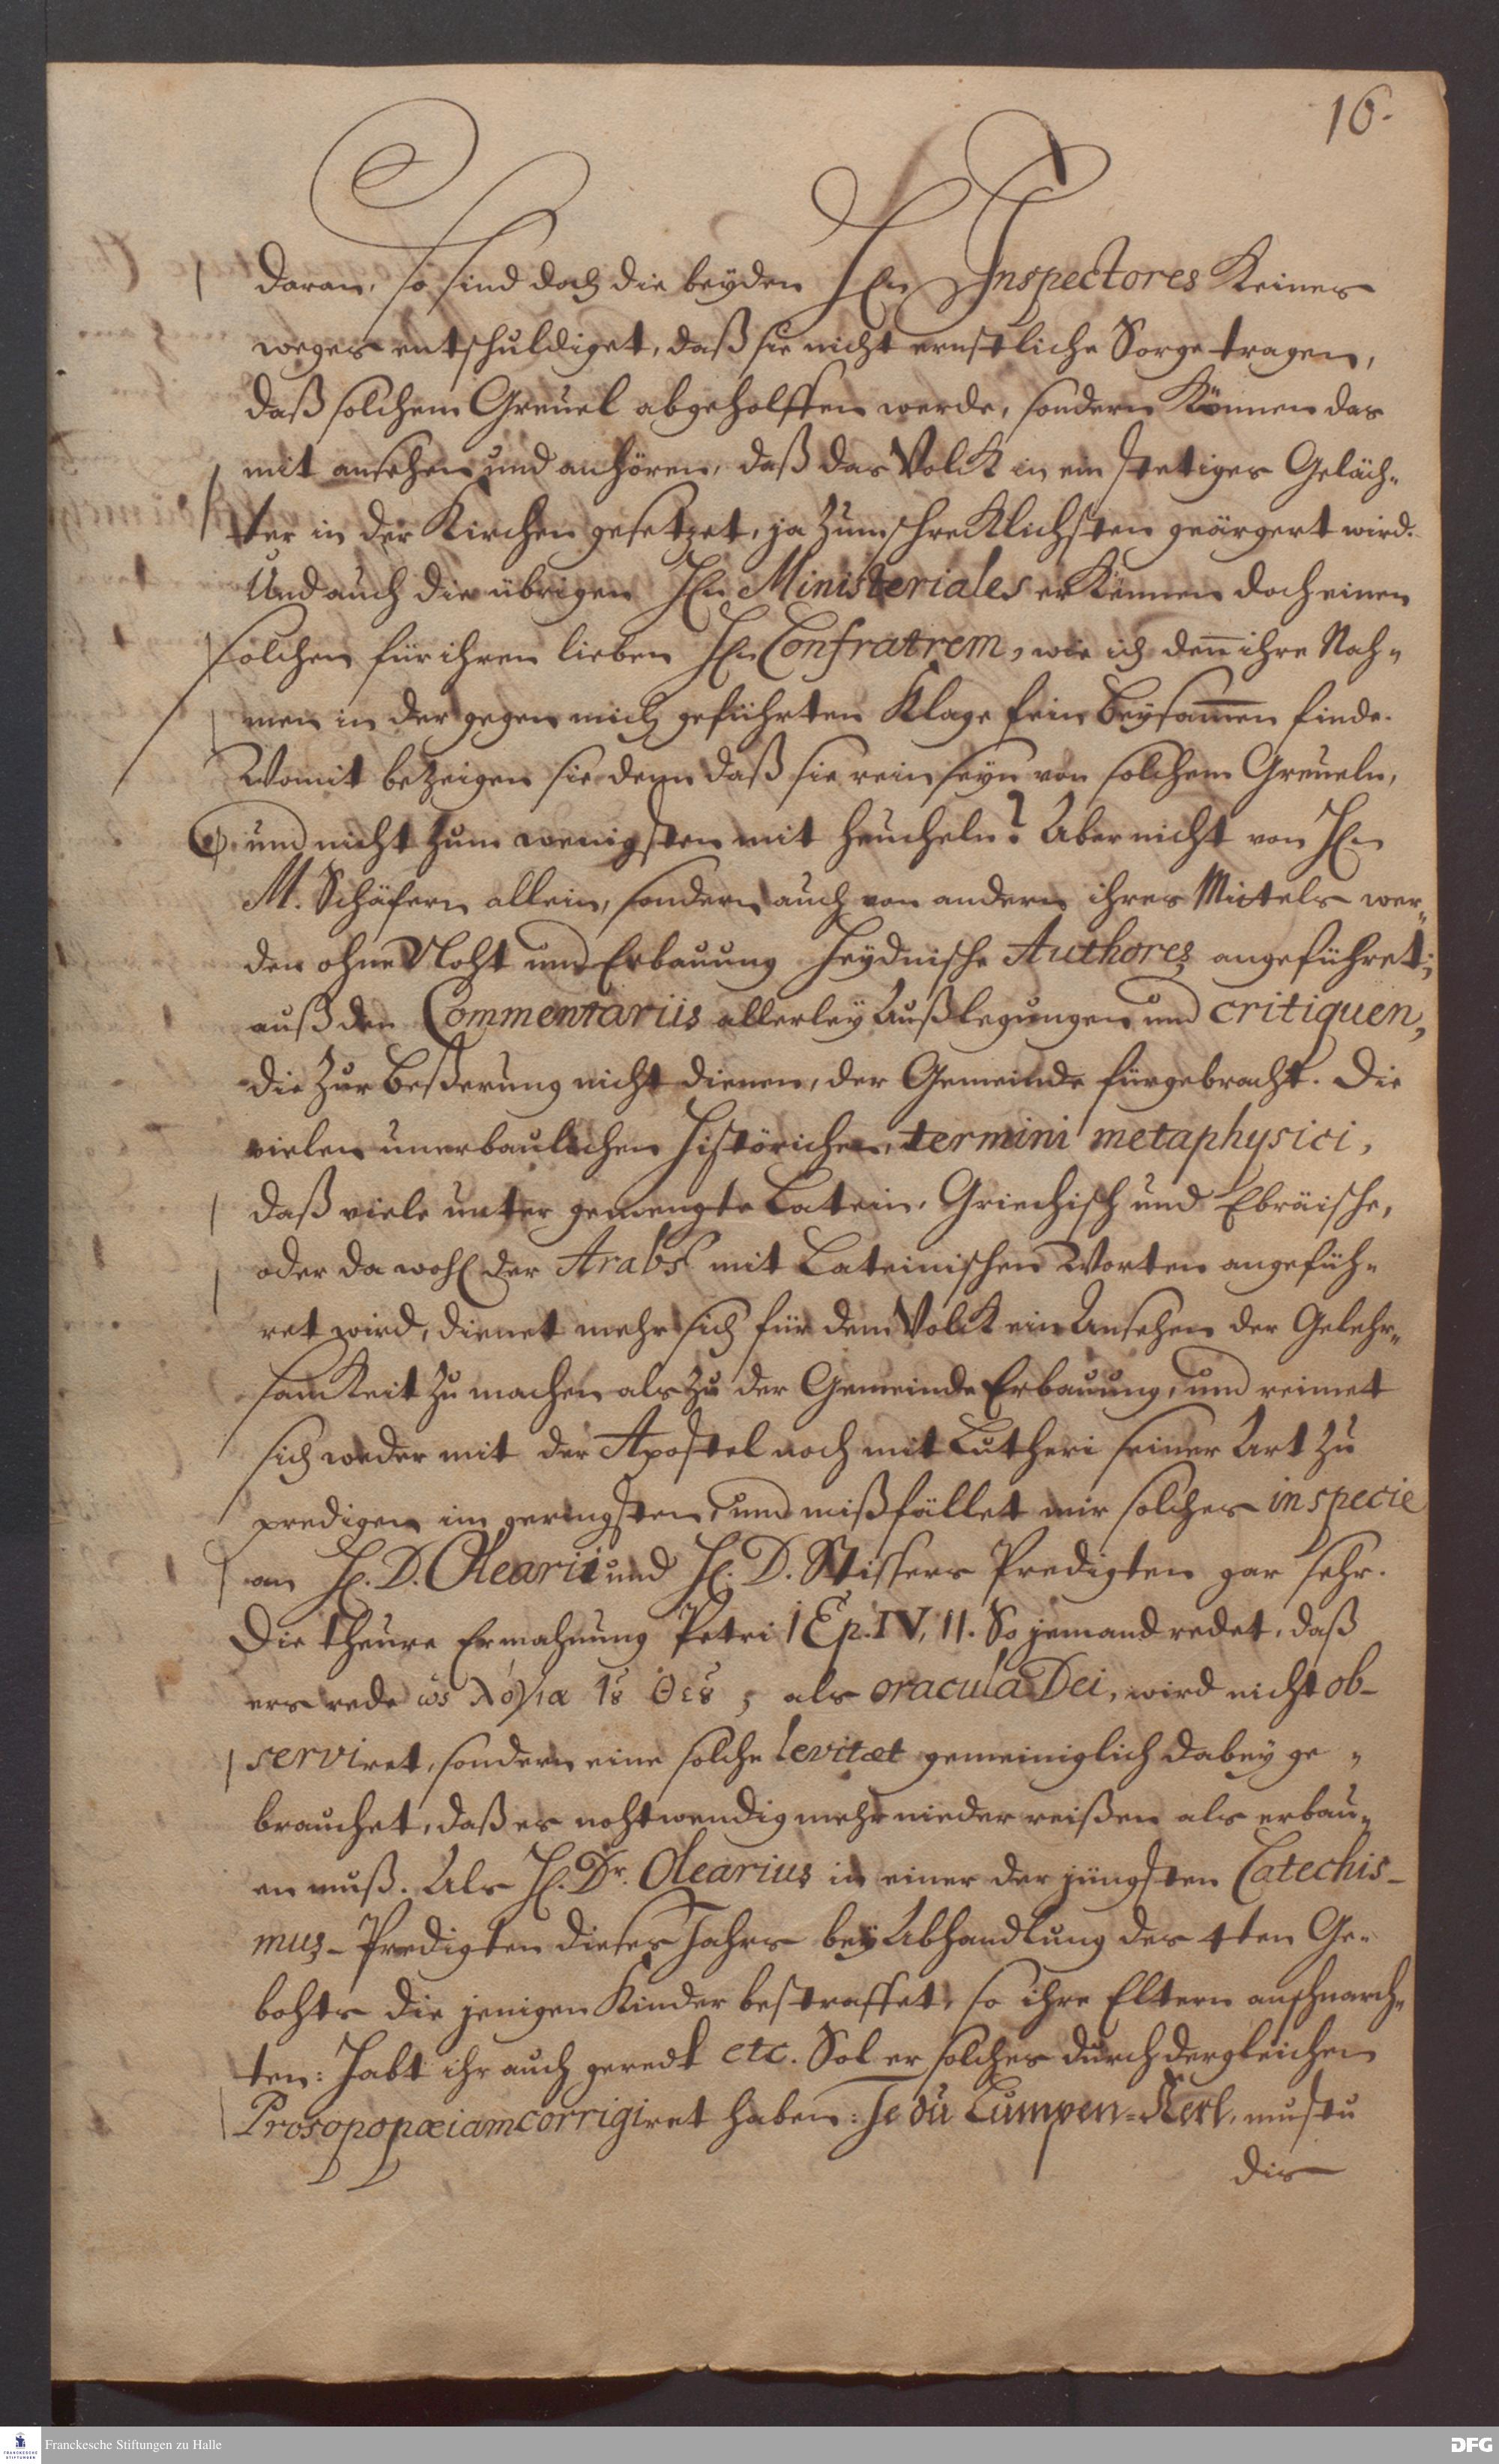 16.
daran, so sind doch die beyden HEn Inspectores keines
weges entschuldiget, daß sie nicht ernstliche Sorge tragen,
daß solchem Greuel abgeholffen werde, sondern können das
mit ansehen und anhören, daß das Volck in ein stetiges Geläch-
ter in der Kirchen gesetzet, ja zum schrecklichsten geärgert wird.
Und auch die übrigen HEn Ministeriales erkennen doch einen
solchen für ihren lieben HEn Confratrem, wie ich den̄ ihre Nah-
men in der gegen mich geführten Klage fein beysam̄en finde.
Womit bezeigen sie denn daß sie rein seyn von solchem Greueln,
und nicht zum wenigsten mit heucheln? Aber nicht von HEn
M. Schäfern allein, sondern auch von andern ihres Mittels wer-
den ohne Noht und Erbauung Heydnische Authores angeführet;
auß den Commentariis allerley Außlegungen und critiquen,
die zur Beßerung nicht dienen, der Gemeinde fürgebracht. Die
vielen unerbaulichen Histörichen, termini metaphysici,
daß viele unter gemengte Latein, Griechisch und Ebräische,
oder da wohl der Arabs mit Lateinischen Worten angefüh-
ret wird, dienet mehr sich für dem Volck ein Ansehen der Gelehr-
samkeit zu machen als zu der Gemeinde Erbauung, und reimet
sich weder mit der Apostel noch mit Lutheri seiner Art zu
predigen im geringsten, und mißfället mir solches in specie
an H. D. Olearii und H. D. Stissers Predigten gar sehr.
Die theure Ermahnung Petri 1 Ep. IV, 11. So jemand redet, daß
ers rede ὡς λόγια τȣ θεȣ, als oracula Dei, wird nicht ob-
serviret, sondern eine solche levitæt gemeiniglich dabey ge-
brauchet, daß es nohtwendig mehr nieder reißen als erbau-
en muß. Als H. Dr. Olearius in einer der jüngsten Catechis-
mus-Predigten dieses Jahrs bey Abhandlung des 4ten Ge-
bohts die jenigen Kinder bestraffet, so ihre Eltern anschnarch-
ten: Habt ihr auch geredt etc. Sol er solches durch dergleichen
Prosopopœiam corrigiret haben: Je du Lumpen-Kerl, mustu
die
Franckesche Stiftungen zu Halle
FRANCKESCHE STIFTUNGEN
DFG